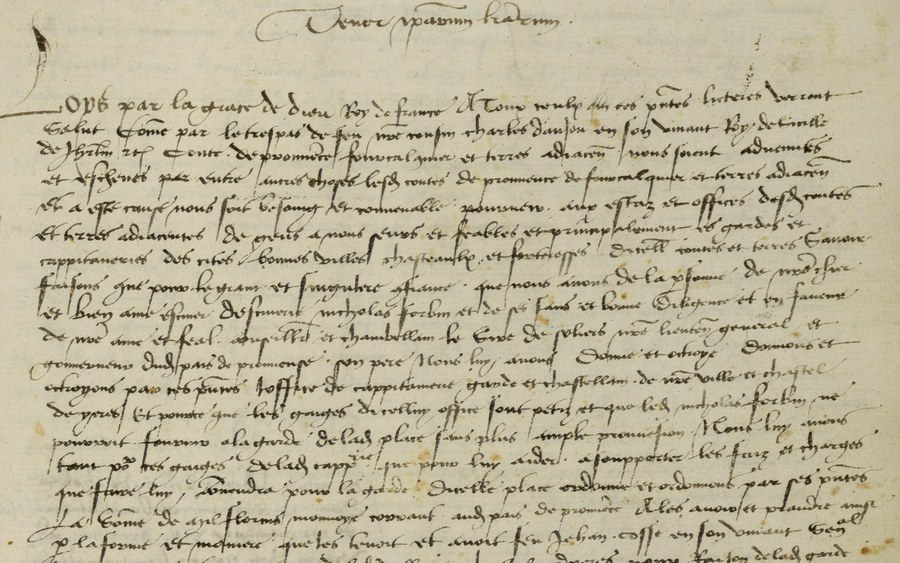 Tenor iparum lrarum.
Loys par la grace de dieu Roy de france A Tous ceulx qui ces pntes lectres verront
Salut Come par le trespas de feu nre cousin charles daniou en son vivant Roy de Sicille
de Jhrlm etc Conte de prouuence forcalquier et terres adiacen nous soient aduenues
et escheues par entre autres choses lesd contes de prouuence de forcalquier et terres adiacen
Et a este cause nous soit besoing et conuenable pourueoir aux estaz et offices desd contes
et terres adiacentes de gens a nous seurs et feables et principalement es gardes et
cappitaineries des cites bonnes villes chasteaulx et forteresses dicelle contes et terres Sauoir
faisons que pour la grant et singuliere confiance que nous auons de la psonne de nre cher
et bien ame escuier descuierie nicholas forbin et de ses sens et bonne diligence et en faueur
de nre ame et feal conseiller et chambellan le Sire de soliers nre lieuten general et
gouuerneur dud pais de prouuense son pere Nous luy auons donne et octroye donnons et
octroyons par ces pntes loffice de cappitaine garde et chastellain de nre ville et chastel
de yeres Et pource que les gaiges dicelluy office sont petiz et que led nicholas forbin ne
pourroit fournir a la garde de lad place sans plus ample prouuision Nous luy auons
tant pour ces gaiges de lad cappnerie que pour luy aider a supporter les fraiz et charges
que faire luy conuiendra pour la garde dicelle place ordonne et ordonnons par ses pntes
La some de mil florins monnoye courant aud pais de prouuece A les auoir et prandre ainsi
p la forme et maniere que les tenoit et auoit feu Jehan cosse en son viuant Senal